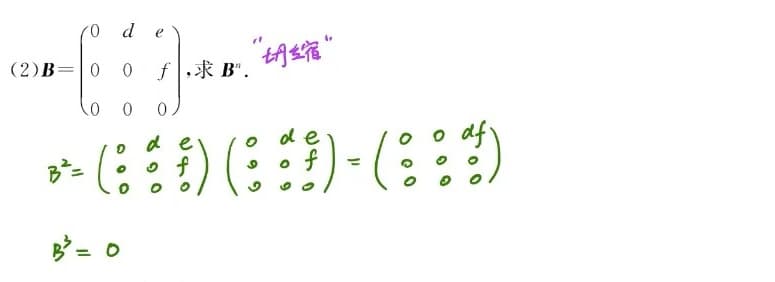 (2)B=(0 d e
0 0 f
0 0 0),求 Bⁿ.
B²=(0 d e
0 0 f
0 0 0)(0 d e
0 0 f
0 0 0)=(0 0 df
0 0 0
0 0 0)
B³=0